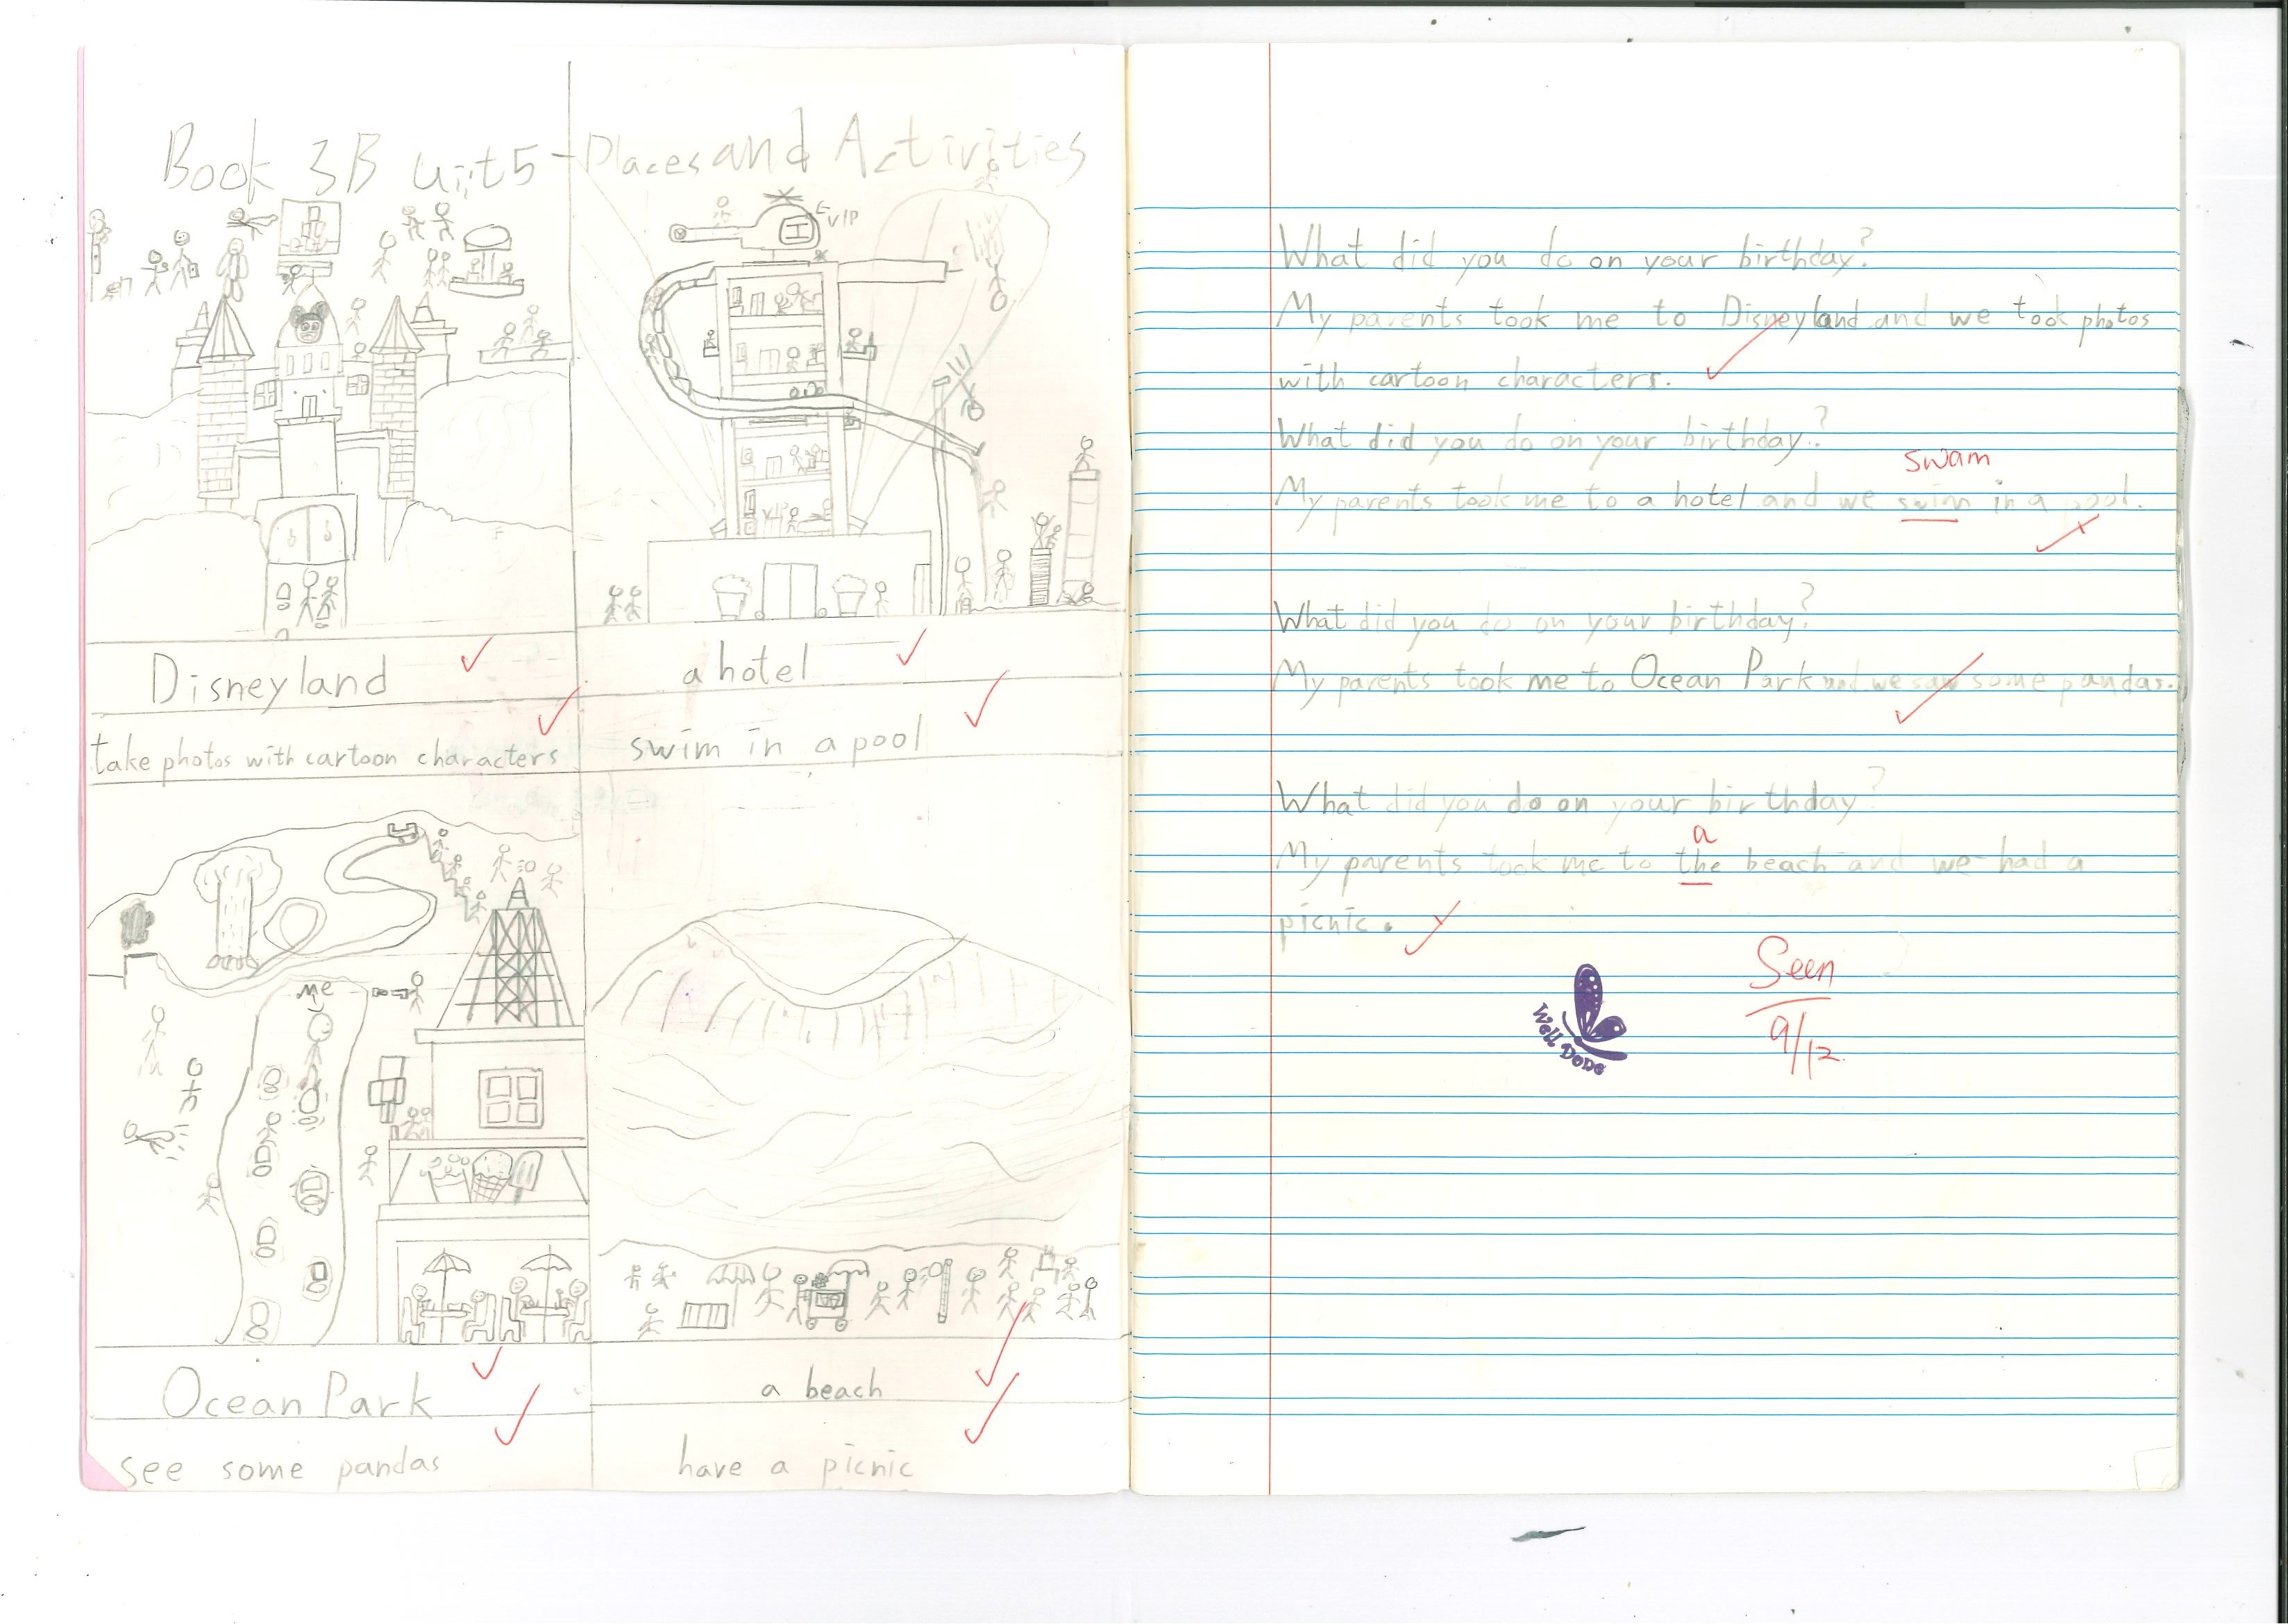 Book 3B Uuit5 - Places and Activities
VIP
VIP
Disneyland
a hotel
take photos with cartoon characters
swim in a pool
me
Ocean Park
a beach
see some pandas
have a picnic
What did you do on your birthday?
My parents took me to Disneyland and we took photos
with cartoon characters.
What did you do on your birthday?
swam
My parents took me to a hotel and we swim in a pool.
What did you do on your birthday?
My parents took me to Ocean Park and we saw some pandas.
What did you do on your birthday?
a
My parents took me to the beach and we had a
picnic.
Well Done
Seen
9/12